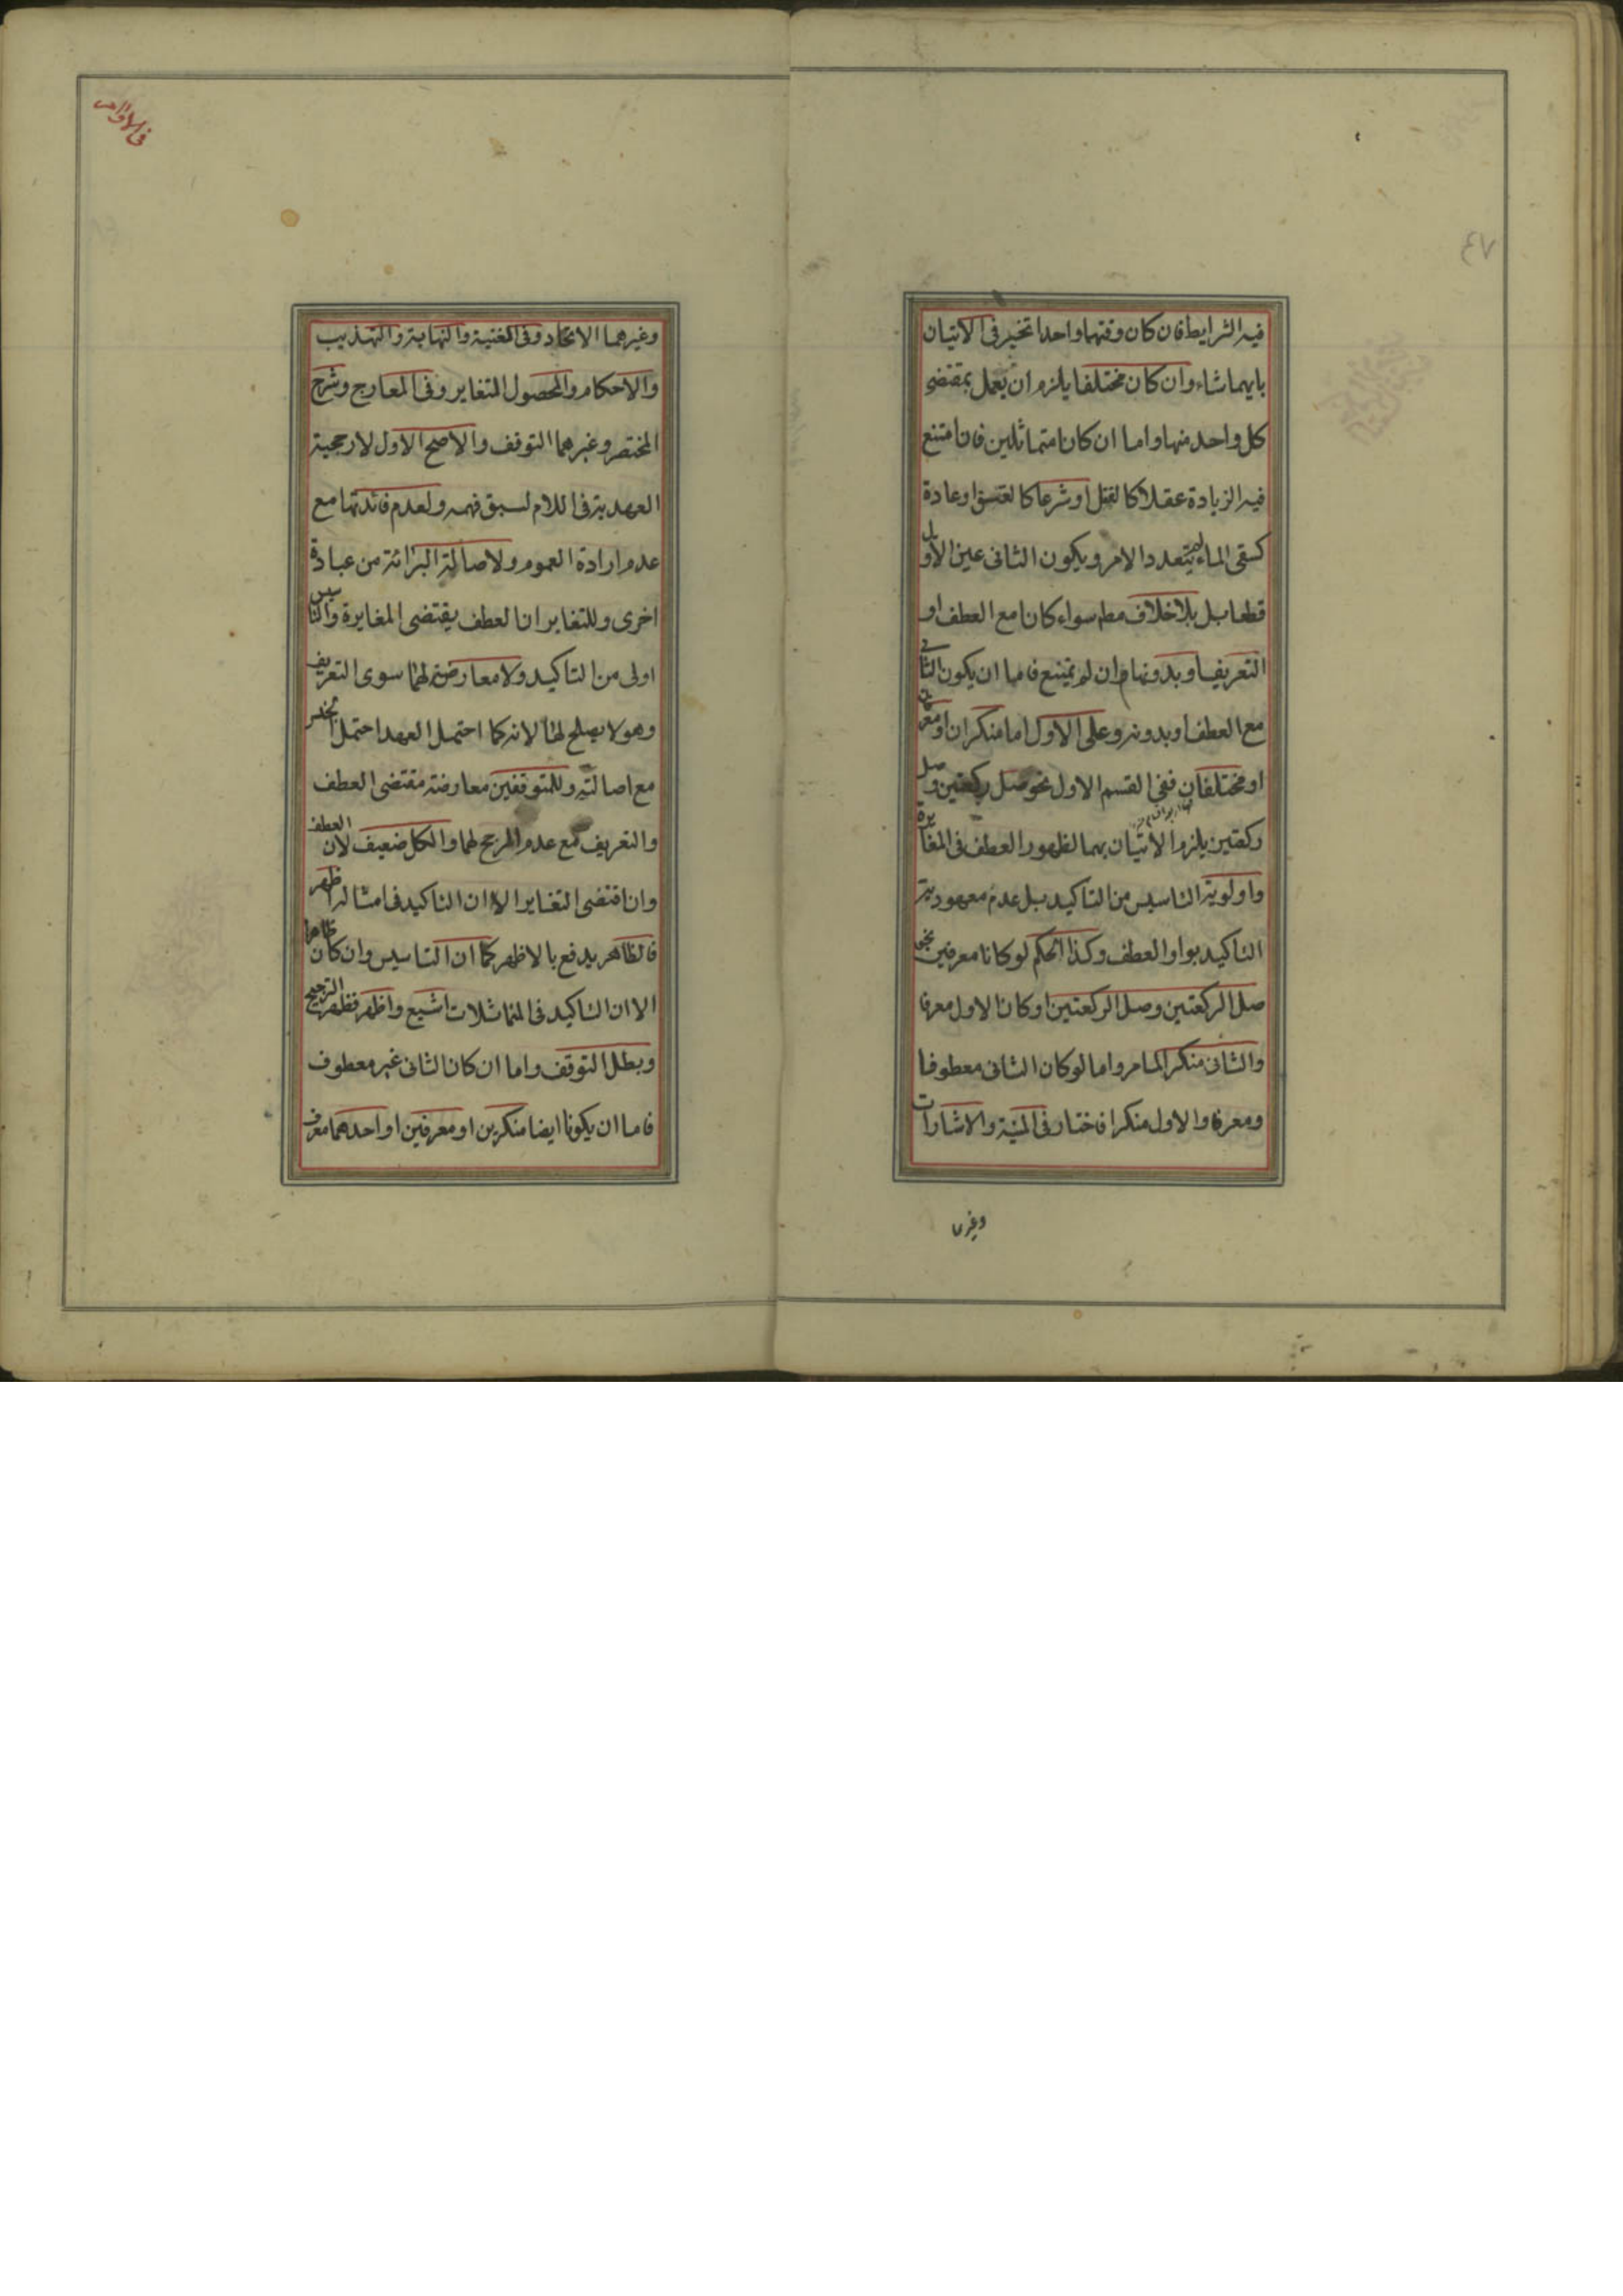 فيه الشرايط فان كان وقتهما واحدا تخير في الاتيان
بايهما شاء وان كان مختلفا يلزم ان يعمل بمقتضى
كل واحد منها واما ان كانا متماثلين فان امتنع
فيه الزيادة عقلا كالقتل او شرعا كالعتق او عادة
كسقى الماء لم يتعدد الامر ويكون الثانى عين الاول
قطعا بل بلا خلاف مطم سواء كانا مع العطف او
التعريف او بدونها وان لم يمتنع فاما ان يكون الثانى
مع العطف او بدونه وعلى الاول اما منكران او معرفان
او مختلفان ففى القسم الاول نحو صل ركعتين وصل
ركعتين يلزم الاتيان بهما لظهور العطف فى المغايرة
واولوية التاسيس من التاكيد بل عدم معهودية
التاكيد بواو العطف وكذا الحكم لو كانا معرفين نحو
صل الركعتين وصل الركعتين او كان الاول معرفا
والثانى منكرا لما مر واما لو كان الثانى معطوفا
ومعرفا والاول منكرا فاختار فى المنية والاشارات
وغيرهما
٤٧
وغيرهما الاتحاد وفى الغنية والنهاية والتهذيب
والاحكام والمحصول المتغاير وفى المعارج وشرح
المختصر وغيرهما التوقف والاصح الاول لارجحية
العهدية فى اللام لسبق فهمه ولعدم فائدتها مع
عدم ارادة العموم ولاصالة البرائة من عبادة
اخرى وللتغاير ان العطف يقتضى المغايرة والتاسيس
اولى من التاكيد ولا معارض لهما سوى التعريف
وهو لا يصلح لها لانه كما احتمل العهد احتمل الجنس
مع اصالته وللمتوقفين معارضة مقتضى العطف
والتعريف مع عدم المرجح لهما والكل ضعيف لان العطف
وان اقتضى التغاير الا ان التاكيد فى امثاله اظهر
فالظاهر يدفع بالاظهر كما ان التاسيس وان كان ظاهرا
الا ان التاكيد فى المتماثلات اشيع واظهر فظهر الترجيح
وبطل التوقف واما ان كان الثانى غير معطوف
فاما ان يكونا ايضا منكرين او معرفين او احدهما معرف